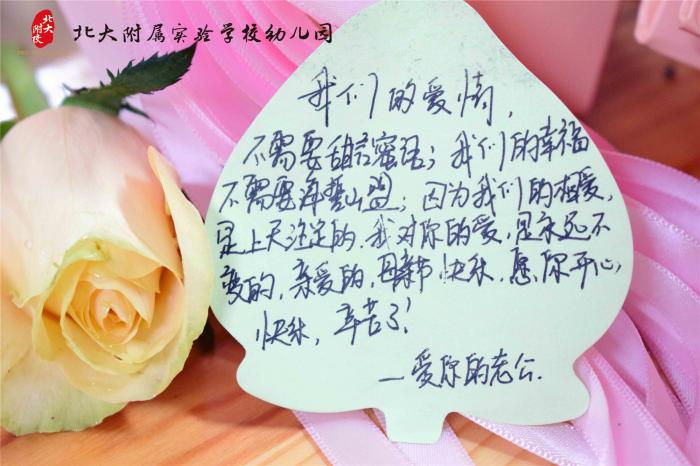 北大附校
北大附属实验学校幼儿园
我们的爱情，
不需要甜言蜜语；我们的幸福
不需要海誓山盟；因为我们的相爱，
是上天注定的，我对你的爱，是永远不
变的，亲爱的，母亲节快乐，愿你开心，
快乐，辛苦了！
—爱你的老公.